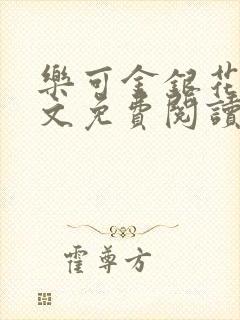 樂可金銀花
文免費閱讀
霍尊方